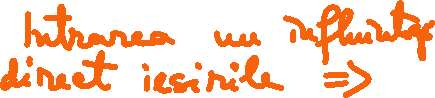 Intrarea nu influențează
direct ieșirile =>